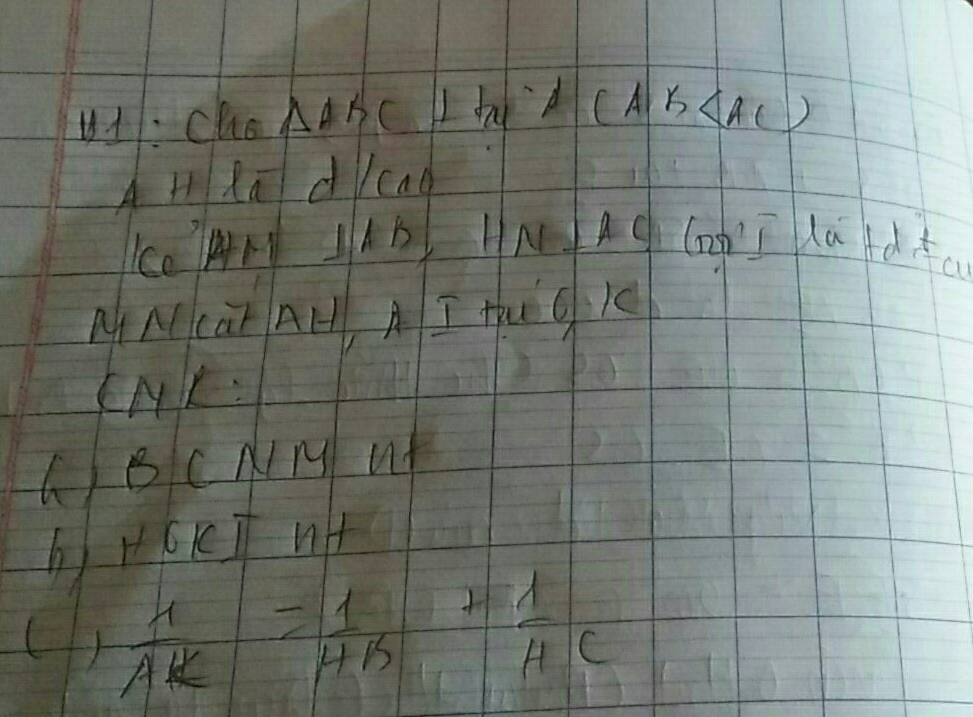 VD1: Cho ΔABC ⊥ tại A (AB<AC)
AH là đ/cao
Kẻ HM ⊥AB, HN⊥AC Gọi I là tđ
MN cắt AH, AI tại O, K
CMR:
a) BCNM nt
b) HOKI nt
c) 1/AK = 1/HB + 1/HC